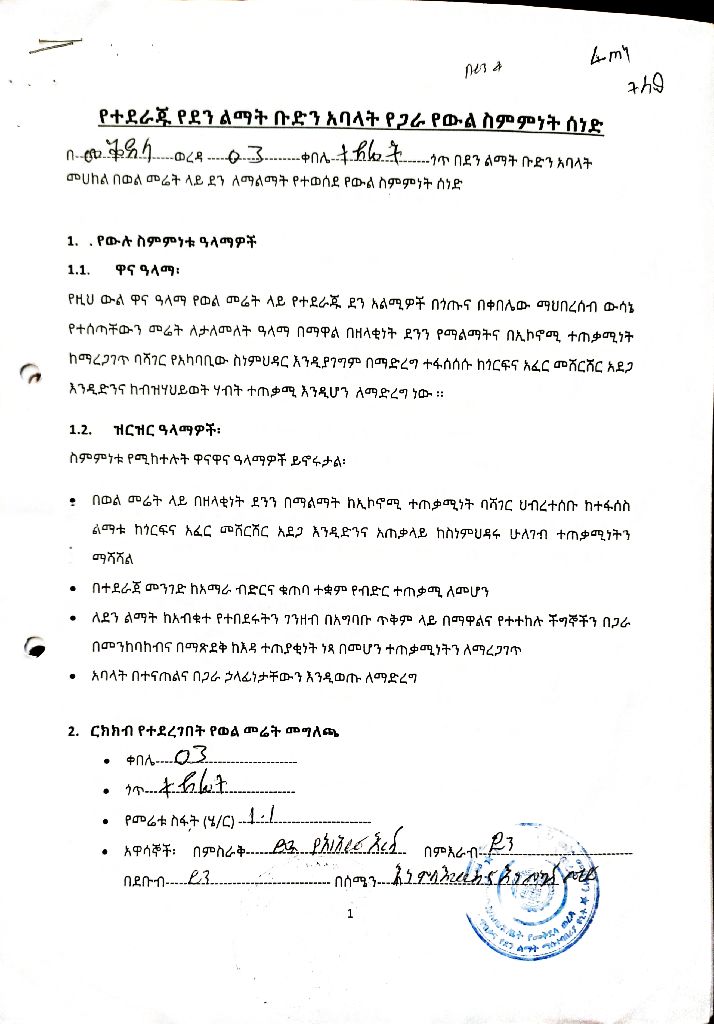 የተደራጁ የደን ልማት ቡድን አባላት የጋራ የውል ስምምነት ሰነድ
በ ወረዳ 03 ቀበሌ ጎጥ በደን ልማት ቡድን አባላት
መሀከል በወል መሬት ላይ ደን ለማልማት የተወሰደ የውል ስምምነት ሰነድ
1. . የውሉ ስምምነቱ ዓላማዎች
1.1. ዋና ዓላማ፡
የዚህ ውል ዋና ዓላማ የወል መሬት ላይ የተደራጁ ደን አልሚዎች በጎጡና በቀበሌው ማህበረሰብ ውሳኔ
የተሰጣቸውን መሬት ለታለመለት ዓላማ በማዋል በዘላቂነት ደንን የማልማትና በኢኮኖሚ ተጠቃሚነት
ከማረጋገጥ ባሻገር የአካባቢው ስነምህዳር እንዲያገግም በማድረግ ተፋሰሰሱ ከጎርፍና አፈር መሸርሸር አደጋ
እንዲድንና ከብዝሃህይወት ሃብት ተጠቃሚ እንዲሆን ለማድረግ ነው ፡፡
1.2. ዝርዝር ዓላማዎች፡
ስምምነቱ የሚከተሉት ዋናዋና ዓላማዎች ይኖሩታል፡
• በወል መሬት ላይ በዘላቂነት ደንን በማልማት ከኢኮኖሚ ተጠቃሚነት ባሻገር ህብረተሰቡ ከተፋሰስ
ልማቱ ከጎርፍና አፈር መሸርሸር አደጋ እንዲድንና አጠቃላይ ከስነምህዳሩ ሁለገብ ተጠቃሚነትን
ማሻሻል
• በተደራጀ መንገድ ከአማራ ብድርና ቁጠባ ተቋም የብድር ተጠቃሚ ለመሆን
• ለደን ልማት ከአብቁተ የተበደሩትን ገንዘብ በአግባቡ ጥቅም ላይ በማዋልና የተተከሉ ችግኞችን በጋራ
በመንከባከብና በማጽደቅ ከእዳ ተጠያቂነት ነጻ በመሆን ተጠቃሚነትን ለማረጋገጥ
• አባላት በተናጠልና በጋራ ኃላፊነታቸውን እንዲወጡ ለማድረግ
2. ርክክብ የተደረገበት የወል መሬት መግለጫ
• ቀበሌ 03
• ጎጥ
• የመሬቱ ስፋት (ሄ/ር) 1.1
• አዋሳኞች፡ በምስራቅ በምእራብ
በደቡብ በሰሜን
1